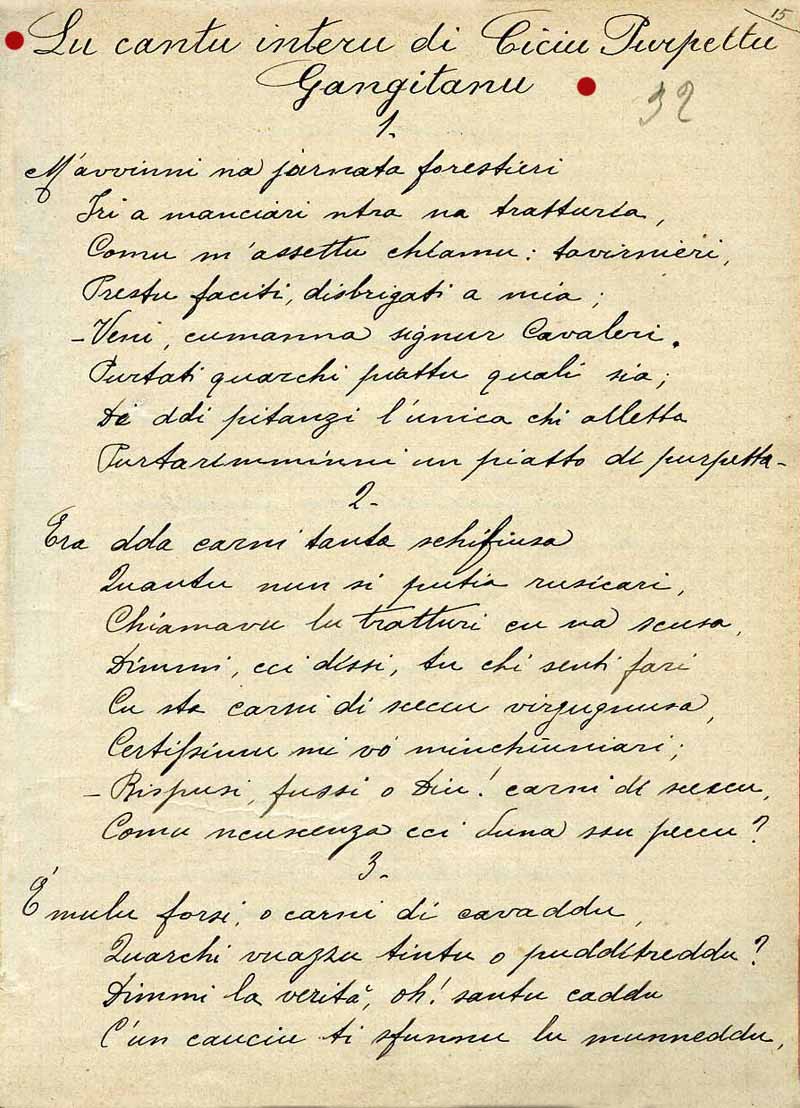 15
Lu cantu interu di Ciciu Purpettu
Gangitanu
32
1.
M'avvinni na jurnata forestieri
Iri a manciari ntra na tratturia,
Comu m'assettu chiamu: tavirnieri,
Prestu faciti, disbrigati a mia;
- Veni, cumanna signur Cavaleri.
Purtati quarchi piattu quali sia;
Di ddi pitanzi l'unica chi alletta
Purtarimminni un piatto di purpetta -
2.
Era dda carni tanta schifiusa
Quantu nun si putia rusicari,
Chiamavu lu tratturi cu na scusa,
Dimmi, cci dissi, tu chi senti fari
Cu sta carni di sceccu virgugnusa,
Certissimu mi vo' minchiuniari;
- Rispusi, fussi o Diu! carni di sceccu,
Comu ncuscenza cci duna ssu peccu?
3.
È mulu forsi, o carni di cavaddu,
Quarchi vuazzu tintu o pudditreddu?
Dimmi la verità, oh! santu caddu
C'un cauciu ti sfunnu lu munneddu,